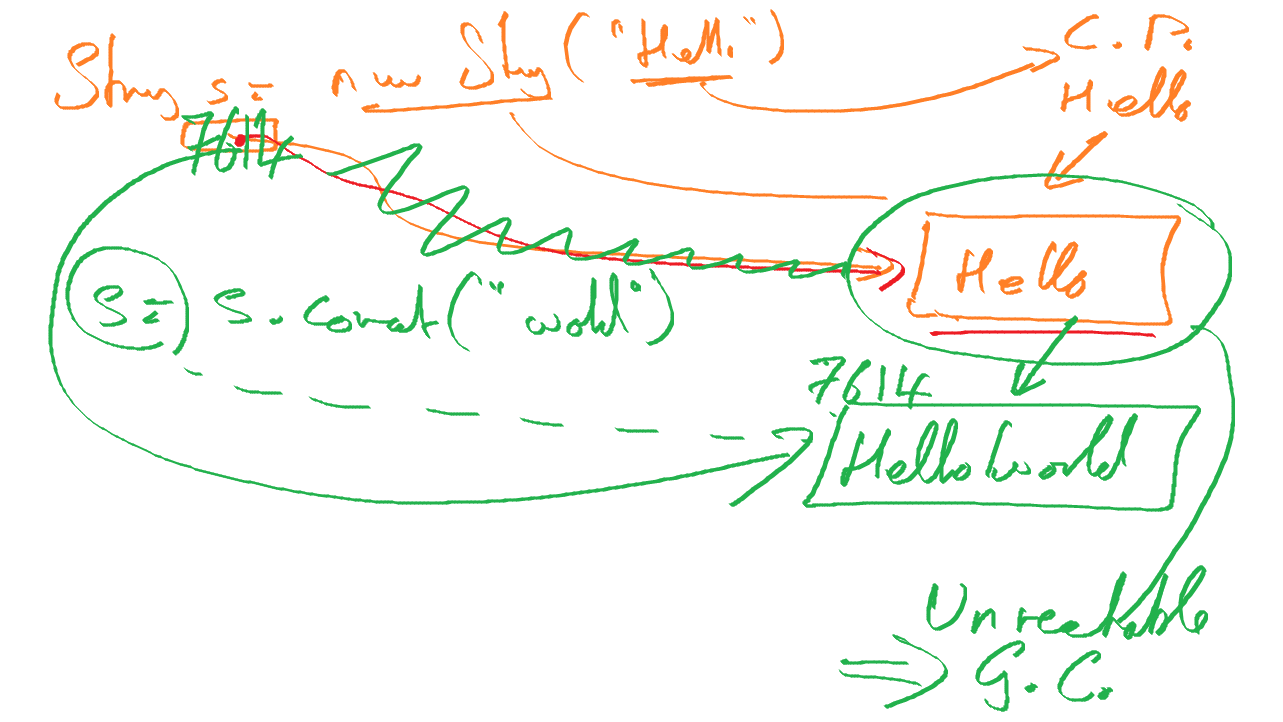 String s = new String ("Hello")
C. P.
Hello
7614
Hello
s = s.concat(" world")
7614
Hello World
Unreachable
⇒ G.C.